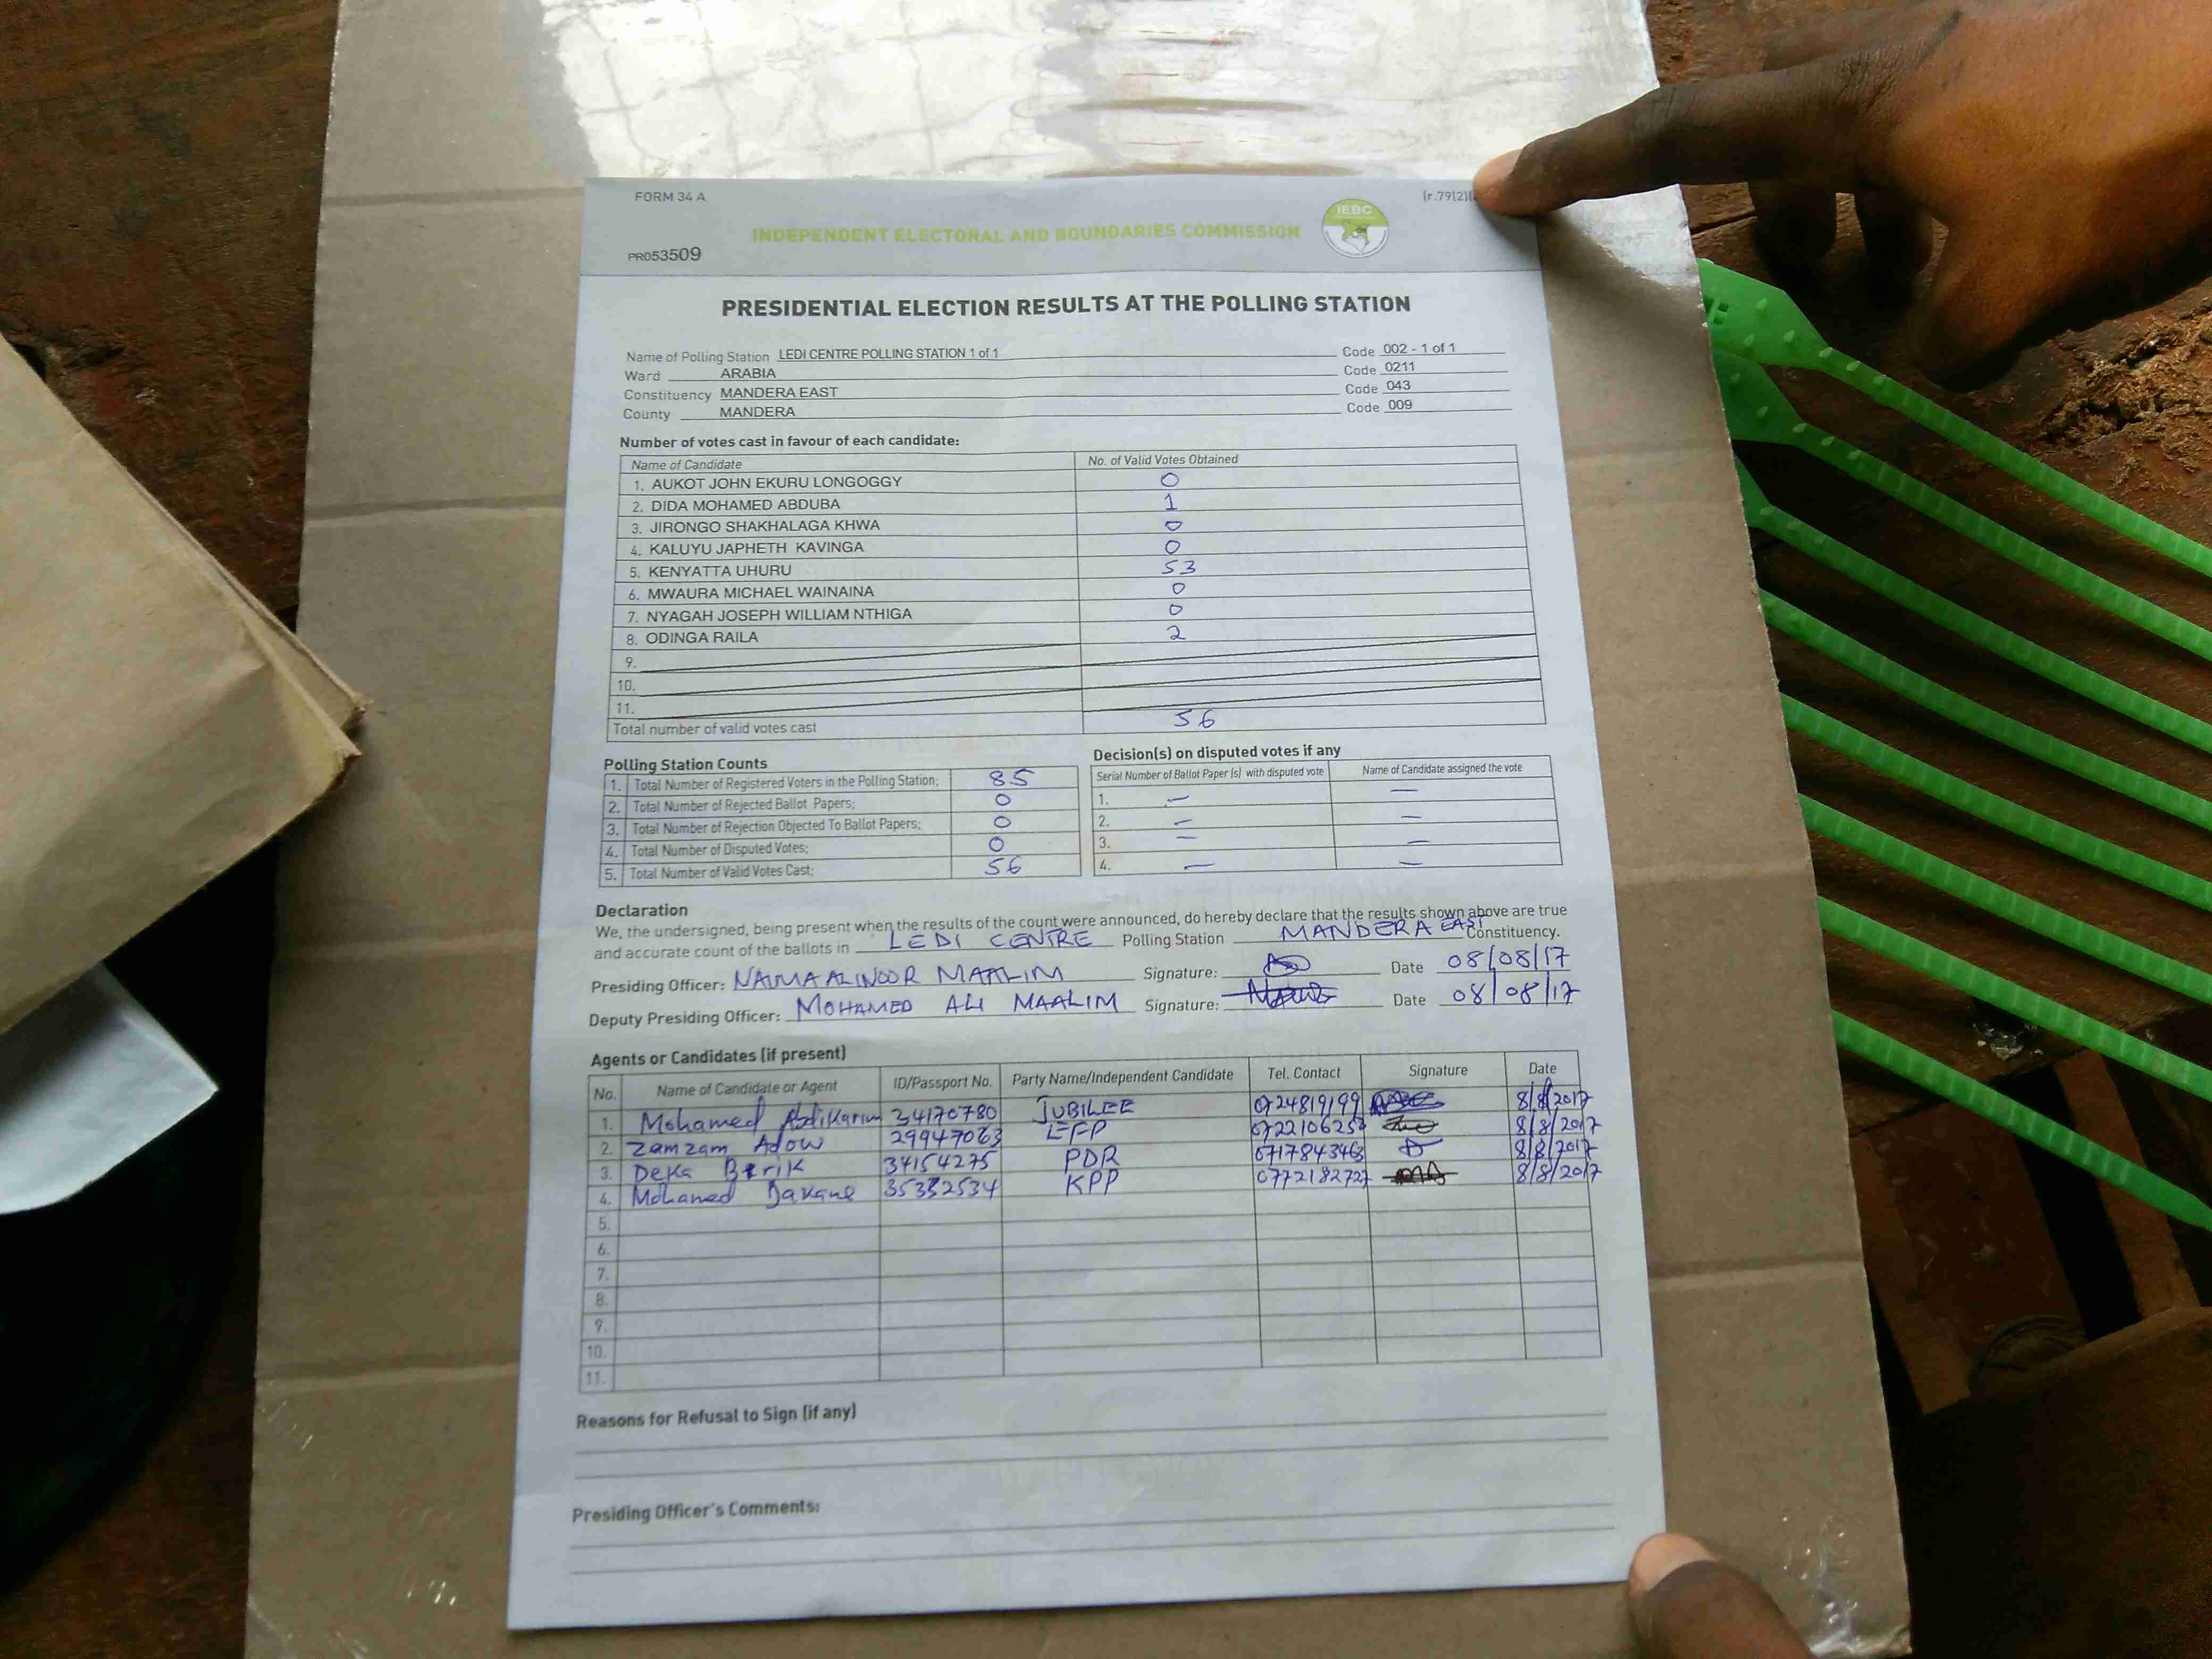 FORM 34 A
(r.79(2)(
IEBC
INDEPENDENT ELECTORAL AND BOUNDARIES COMMISSION
PR053509
PRESIDENTIAL ELECTION RESULTS AT THE POLLING STATION
Name of Polling Station LEDI CENTRE POLLING STATION 1 of 1 Code 002 - 1 of 1
Ward ARABIA Code 0211
Constituency MANDERA EAST Code 043
County MANDERA Code 009
Number of votes cast in favour of each candidate:
Name of Candidate No. of Valid Votes Obtained
1. AUKOT JOHN EKURU LONGOGGY 0
2. DIDA MOHAMED ABDUBA 1
3. JIRONGO SHAKHALAGA KHWA 0
4. KALUYU JAPHETH KAVINGA 0
5. KENYATTA UHURU 53
6. MWAURA MICHAEL WAINAINA 0
7. NYAGAH JOSEPH WILLIAM NTHIGA 0
8. ODINGA RAILA 2
9.
10.
11.
Total number of valid votes cast 56
Polling Station Counts
1. Total Number of Registered Voters in the Polling Station; 85
2. Total Number of Rejected Ballot Papers; 0
3. Total Number of Rejection Objected To Ballot Papers; 0
4. Total Number of Disputed Votes; 0
5. Total Number of Valid Votes Cast; 56
Decision(s) on disputed votes if any
Serial Number of Ballot Paper (s) with disputed vote Name of Candidate assigned the vote
1. — —
2. — —
3. — —
4. — —
Declaration
We, the undersigned, being present when the results of the count were announced, do hereby declare that the results shown above are true
and accurate count of the ballots in LEDI CENTRE Polling Station MANDERA EAST Constituency.
Presiding Officer: NAIMA ALINOOR MAALIM Signature: Date 08/08/17
Deputy Presiding Officer: MOHAMED ALI MAALIM Signature: Date 08/08/17
Agents or Candidates (if present)
No. Name of Candidate or Agent ID/Passport No. Party Name/Independent Candidate Tel. Contact Signature Date
1. Mohamed Abdikarim 34170780 JUBILEE 0724819199 8/8/2017
2. Zamzam Adow 29947063 EFP 8/8/2017
3. Deka 34154275 PDR 0717843463 8/8/2017
4. Mohamed KPP 0772182727 8/8/2017
5.
6.
7.
8.
9.
10.
11.
Reasons for Refusal to Sign (if any)
Presiding Officer's Comments: